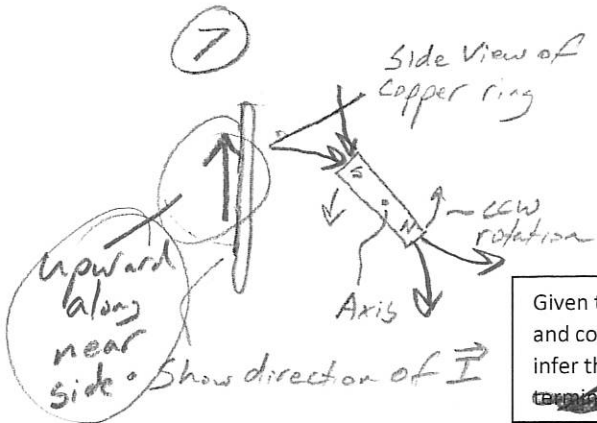 7
Side View of
copper ring
S
N
CCW
rotation
Axis
upward
along
near
side.
Show direction of I
Given t
and co
infer th